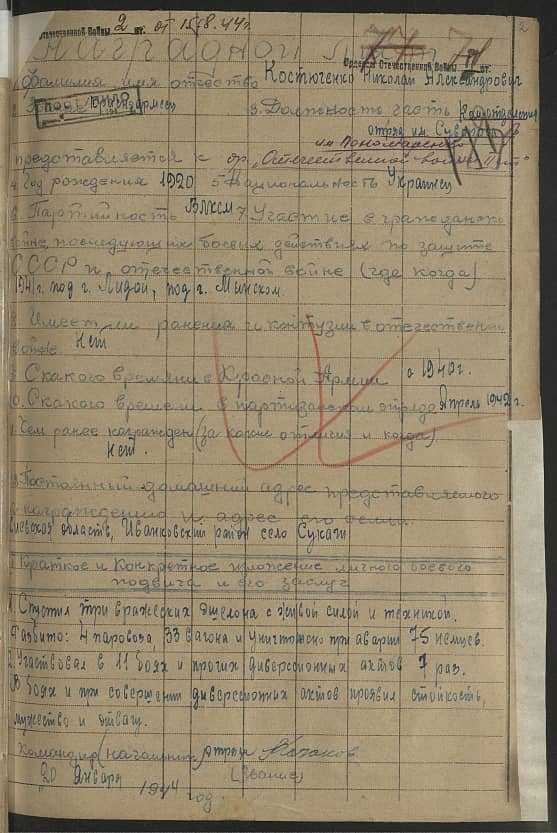 Отечественной Войны 2 ст. от 15/8.44 г.
Наградной лист
Орденом Отечественной Войны II ст.
1 Фамилия имя отечество Костюченко Николай Александрович
2 3. Должность часть Ком. отделения
отряд им. Суворова
им Пономаренко
представляется к ор. "Отечественная война II ст"
4 Год рождения 1920 5 Национальность Украинец
6 Партийность ВЛКСМ 7 Участие в гражданско
войне, последующих боевых действиях по защите
СССР и отечественной войне (где когда)
1941 г. под г. Лидой, под г. Минском.
8. Имеет ли ранения и контузии в отечественн
войне. Нет
9 С какого времяни в Красной Армии с 1940 г.
10. С какого времени в партизанском отряде Апрель 1942 г.
11. Чем ранее награжден (за какие отличия и когда)
Нет.
12. Постоянный домашний адрес представляемого
к награждению и адрес его семьи.
Киевская область, Иванковский район село Сукачи
Краткое и Конкретное изложение личного боевого
подвига и его заслуг
1. Спустил три вражеских эшелона с живой силой и техникой.
Разбито: 4 паровоза 33 вагона и уничтожено при аварии 75 немцев.
2. Участвовал в 11 боях и прочих диверсионных актов 7 раз.
В боях и при совершении диверсионных актов проявил стойкость,
мужество и отвагу.
Командир (начальник) отряда
(Звание)
20 Января 1944 год